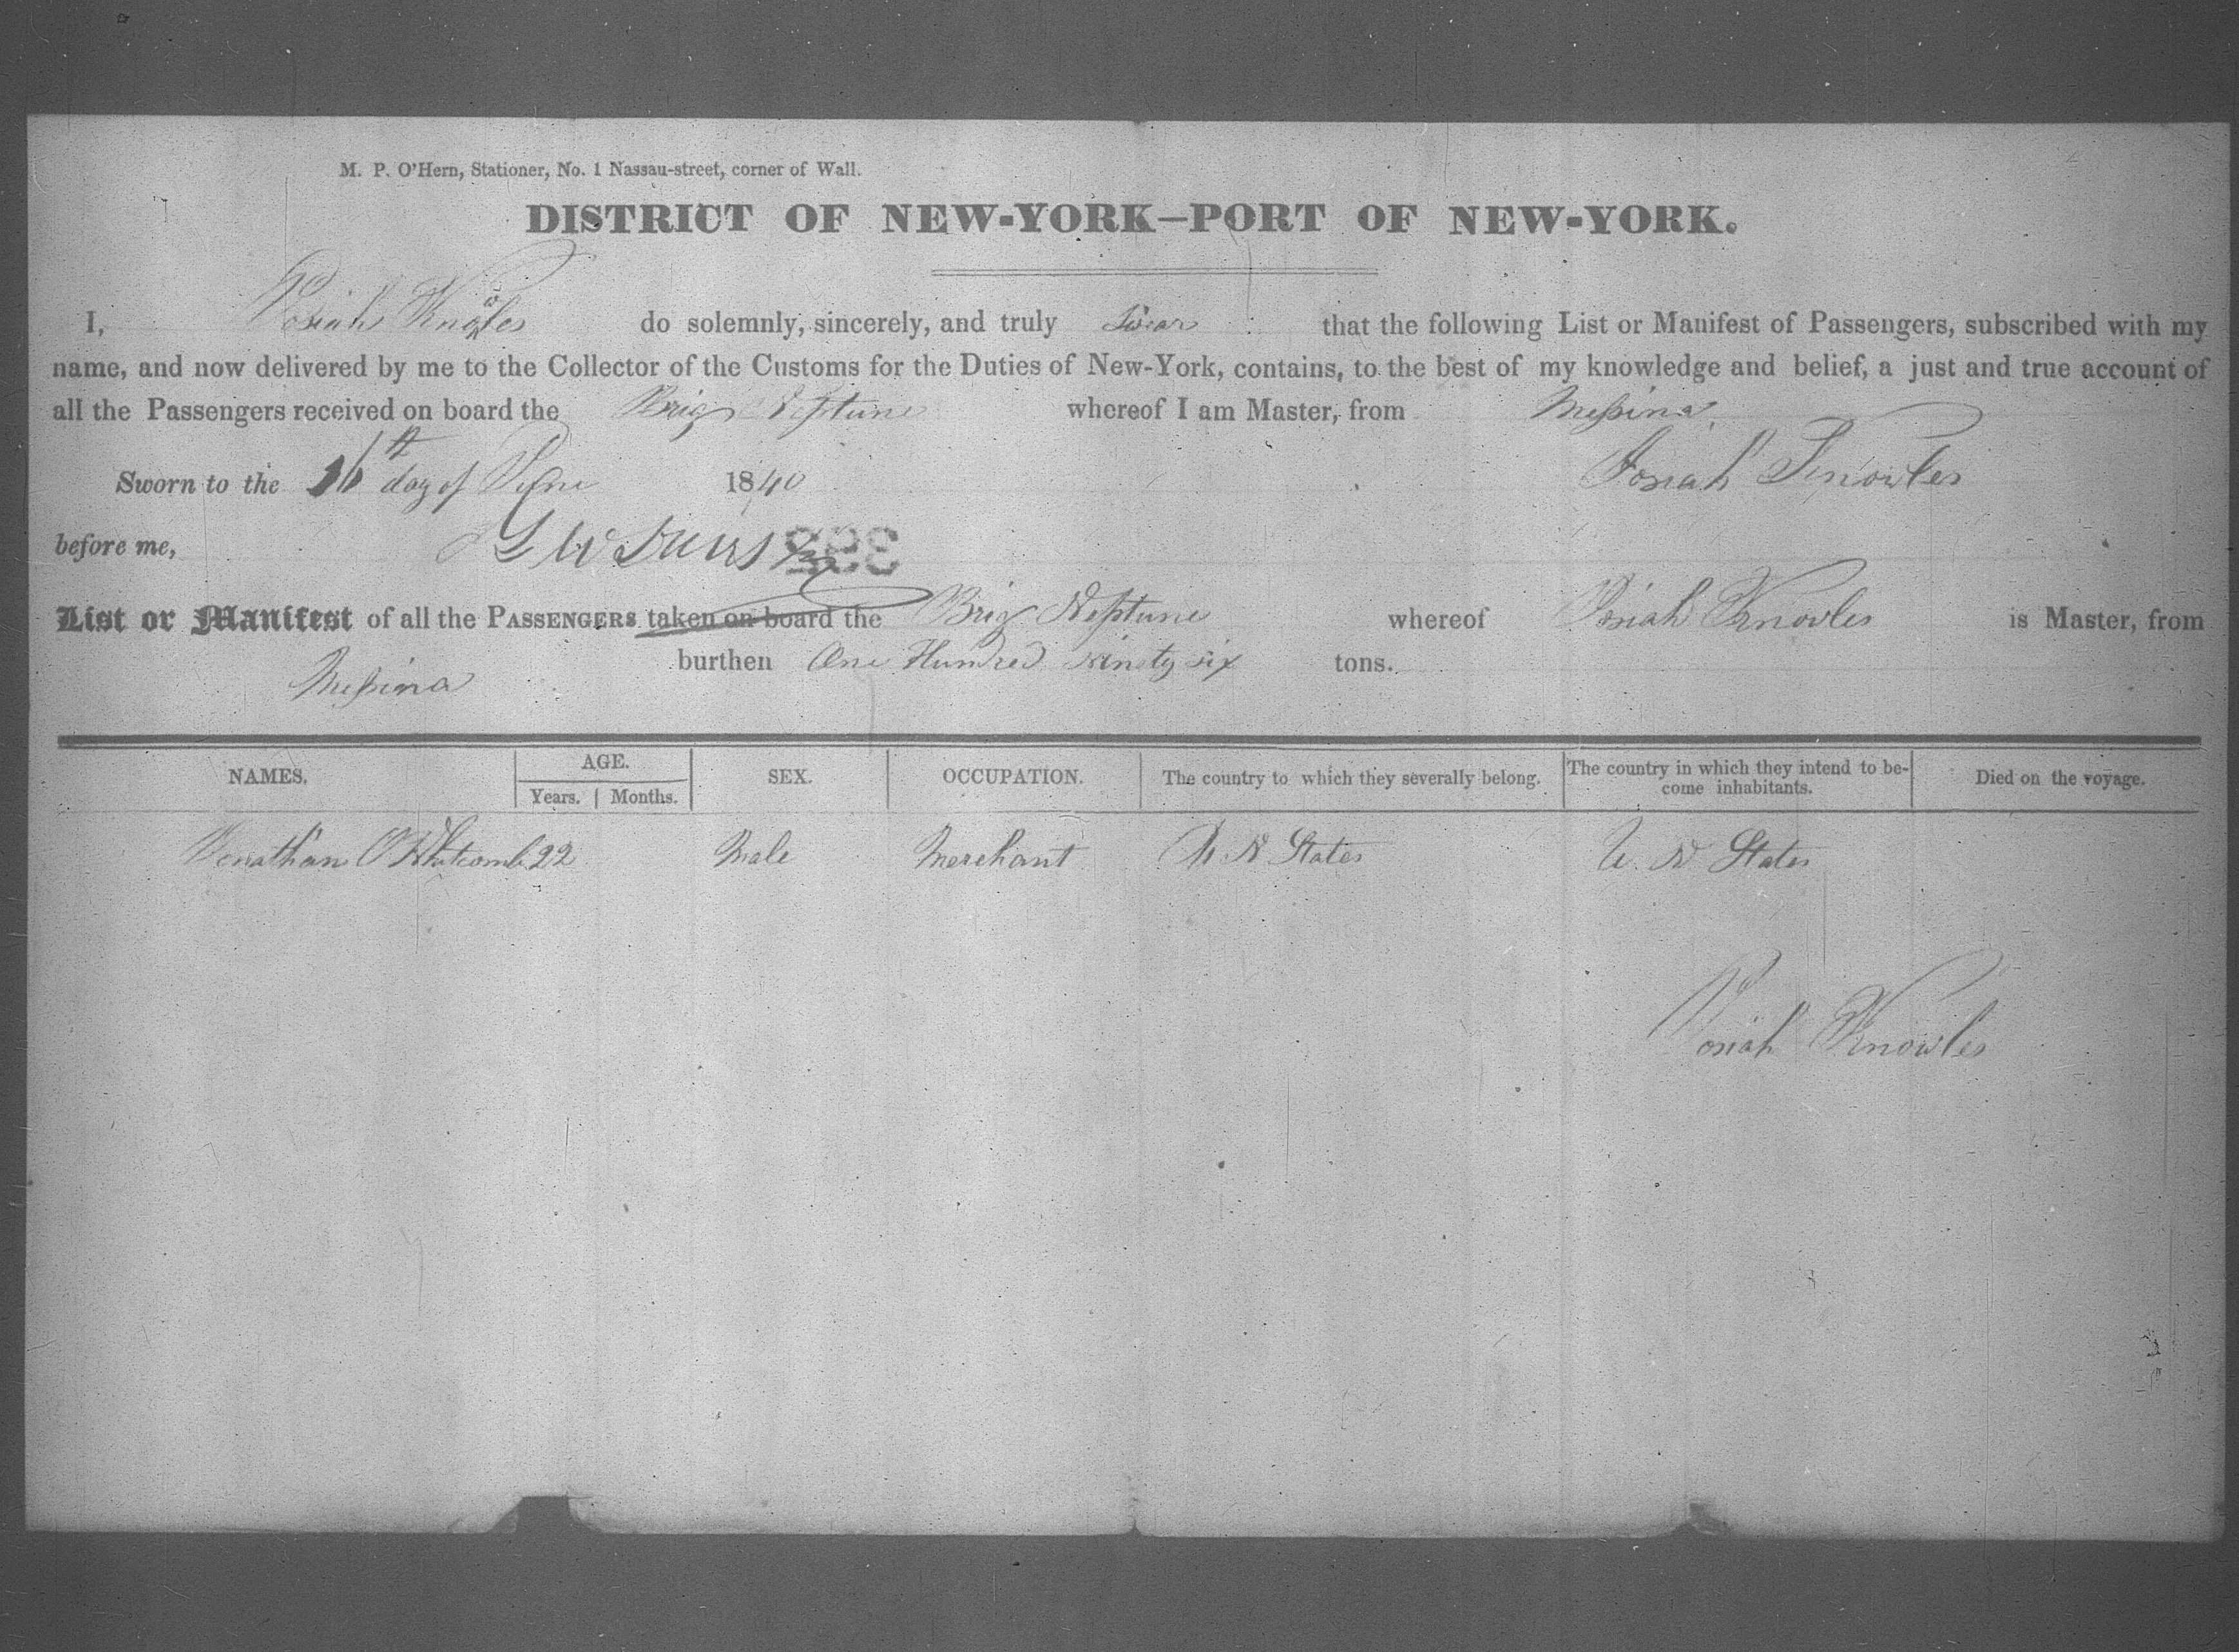 M. P. O'Hern, Stationer, No. 1 Nassau-street, corner of Wall.
DISTRICT OF NEW-YORK—PORT OF NEW-YORK.
I, Josiah Knowles do solemnly, sincerely, and truly swear that the following List or Manifest of Passengers, subscribed with my
name, and now delivered by me to the Collector of the Customs for the Duties of New-York, contains, to the best of my knowledge and belief, a just and true account of
all the Passengers received on board the Brig Neptune whereof I am Master, from Messina
Sworn to the 16th day of June 1840 Josiah Knowles
before me,
List or Manifest of all the PASSENGERS taken on board the Brig Neptune whereof Josiah Knowles is Master, from
Messina burthen One Hundred Ninety six tons.
NAMES. AGE. Years. Months. SEX. OCCUPATION. The country to which they severally belong. The country in which they intend to become inhabitants. Died on the voyage.
Jonathan O Whitcomb 22 Male Merchant U. States U. States
Josiah Knowles